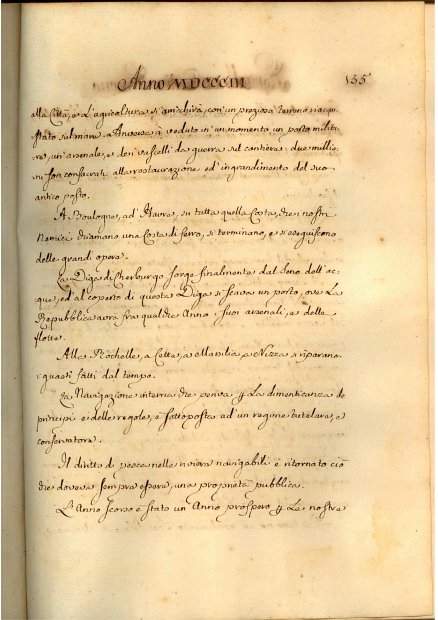 Anno MDCCCIII 155
alla Città, e l'agricoltura si arrichirà, con un prezioso terreno riacqui-
stato sul mare. Anversa à veduto in un momento un porto milita-
re, un arsenale, e dei vascelli da guerra sul cantiere: due millio-
ni son consacrati alla restaurazione ed ingrandimento del suo
antico posto.
A Boulogne, ad Havre, su tutta quella Costa, che i nostri
Nemici chiamano una Costa di ferro, si terminano, e si eseguiscono
delle grandi opere.
La Diga di Cherburgo sorge finalmente dal seno dell'ac-
que, ed al coperto di questa Diga si scava un porto, ove La
Repubblica avrà fra qualche Anno i suoi arsenali, e delle
flotte.
Alla Rochelle, a Cette, a Marsilia, a Nizza si riparano
i guasti fatti dal tempo.
La Navigazione interna che periva p La dimenticanza de
principi e delle regole, è sottoposta ad un regime tutelare, e
conservatore.
Il diritto di pesca nelle riviere navigabili è ritornato ciò
che doveva sempre essere, una proprietà pubblica.
L'Anno scorso è stato un Anno prospero p Le nostre